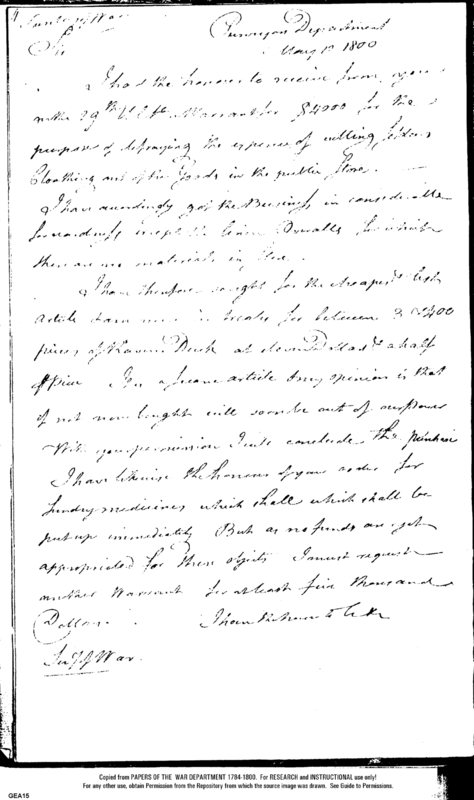 Secretary of War
Purveyors Department
Sir
May 1st 1800
I had the honour to receive from you
on the 29th Ult the Warrant for $4000 for the
purpose of defraying the expense of cutting
Cloathing out of the goods in the public Store.
I have accordingly got the Business in considerable
forwardness except the linen Overalls for which
there are no materials in Store.
I have therefore sought for the cheapest best
article & am now in treaty for between 3 & 400
pieces of Ravens Duck at eleven Dollars & a half
In a scarce article & my opinion is that
if not now bought will soon be out of our Power
With your permission I will conclude the purchase
I have likewise the honour of your order for
Sundry medicines which shall which shall be
put up immediately But as no funds are yet
appropriated for these objects I must request
another Warrant for at least five thousand
Dollars. I have the honor to be &c
Secy of War.
Copied from PAPERS OF THE WAR DEPARTMENT 1784-1800. For RESEARCH and INSTRUCTIONAL use only!
For any other use, obtain Permission from the Repository from which the source image was drawn. See Guide to Permissions.
GEA15